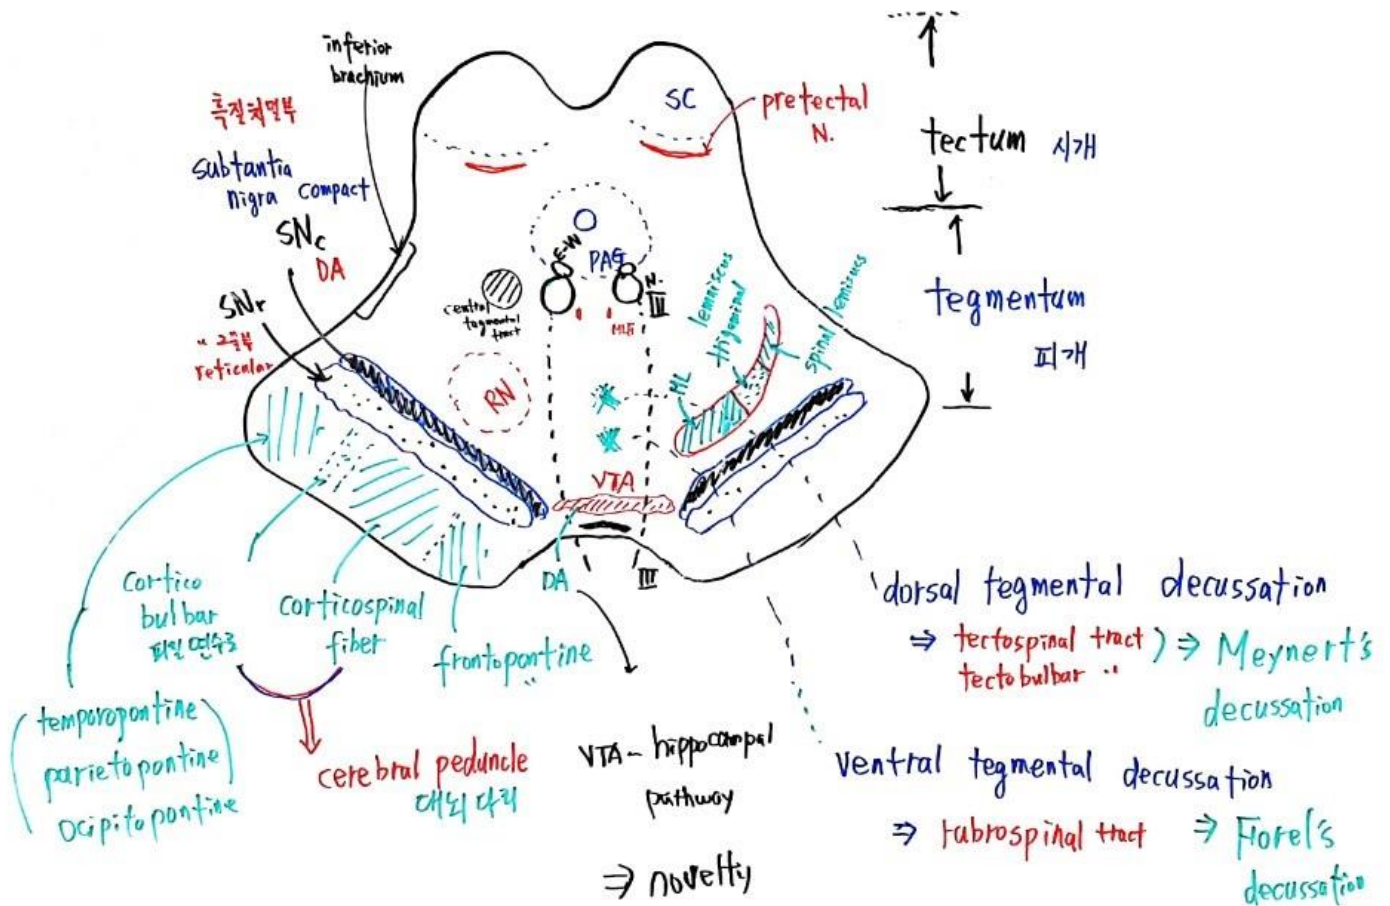 inferior
brachium
흑질치밀부
substantia
nigra compact
SNc
DA
SNr
" 그물부
reticular
SC
pretectal
N.
tectum 시개
tegmentum
피개
E-W
PAG
N.
III
MLF
central
tagmental
tract
RN
lemniscus
trigeminal
spinal lemiscus
ML
VTA
DA
III
cortico
bulbar
corticospinal
fiber
frontopontine
"
temporopontine
parietopontine
ocipitopontine
cerebral peduncle
대뇌다리
VTA - hippocampal
pathway
⇒ novelty
dorsal tegmental decussation
⇒ tectospinal tract ) ⇒ Meynert's
tectobulbar "
decussation
ventral tegmental decussation
⇒ rubrospinal tract ⇒ Forel's
decussation